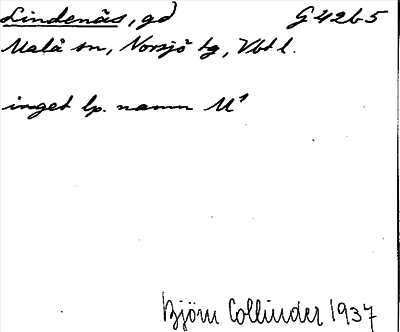 Lindenäs, gd G 42b5
Malå sn, Norsjö tg, Vbt l.
inget lp. namn M¹
Björn Collinder 1937